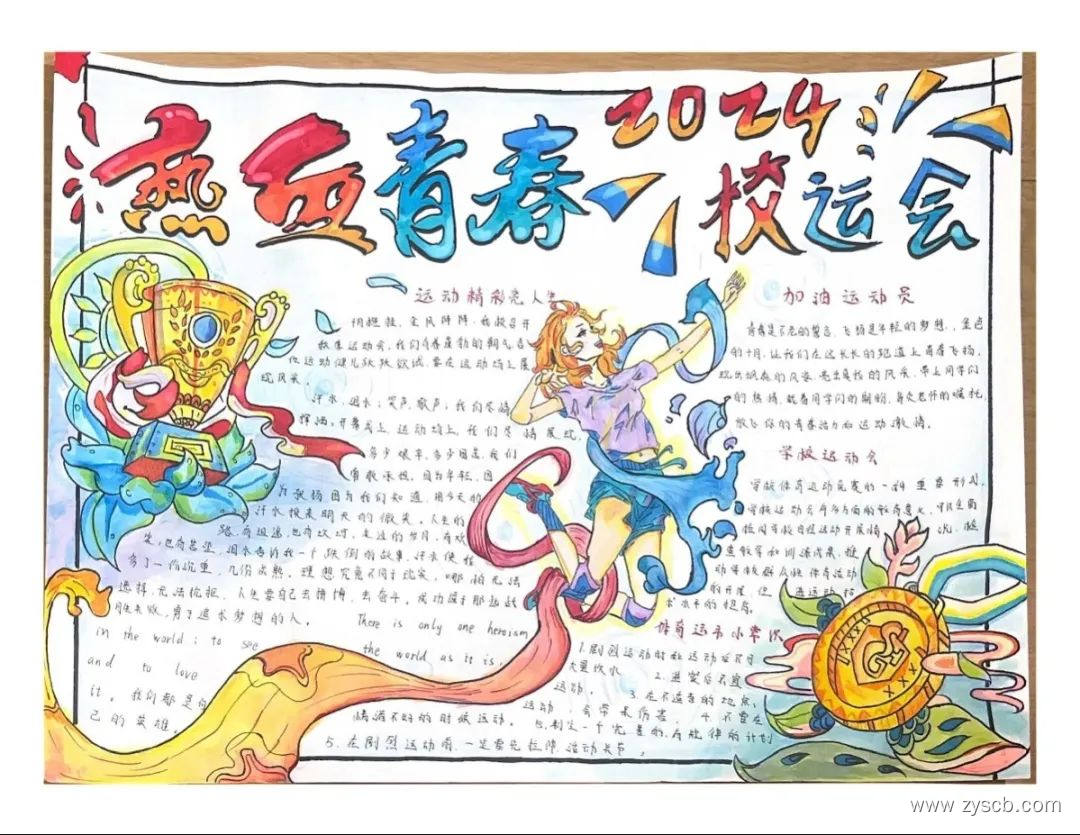 热血青春
2024
校运会
运动精彩亮人生
阳
秋季运动会,我们有着蓬勃的朝气
运动健儿欣欣欲试,要在运动场上展
现风采。
汗水,泪水;笑声,歌声;我们尽情
挥洒。开幕式上,运动场上,我们尽情展现
多少艰辛,多少困苦,我们
勇敢承担。因为年轻,因
为
汗水换来明天的微笑。人生的
路,有坦途,也有坎坷,走过的岁月,有欢
笑,也有苦涩,泪水告诉我一个跌倒的故事,汗水使徒
多了一份沉重,几份成熟。理想究竟不同于现实,哪怕无法
选择,无法挽握。人生要自己去拼搏,去奋斗。成功属于那些战
胜失败,勇于追求梦想的人。 There is only one heroism
in the world: to see the world as it is,
and to love
it。我们都是自
己的英雄。
加油运动员
青春是不老的誓言,飞扬是年轻的梦想,金色
的十月,让我们在这长长的跑道上青春飞扬,
现出飒爽的风姿,亮出最我的风采,带上同学们
的热情,载着同学们的期盼,身负老师的嘱托,
放飞你的青春活力和运动激情。
学校运动会
学校体育运动竞赛的一种重要形式。
学校运动会有多方面的教育意义,
校阅学校田径运动开展情况,检
查教学和训练成果,推
动学校群众性体育活动
的开展,促进运动技
术水平的提高。
体育运动小常识
1.剧烈运动时和运动后不可
大量饮水
2.进餐后不宜
运动。
3.在不适当的地点,
运动 会带来伤害。
4.不要在
情绪不好的时候运动。
5.制定一个完善的,有规律的计划
5.在剧烈运动前,一定要先拉伸,活动关节。
www.zyscb.com